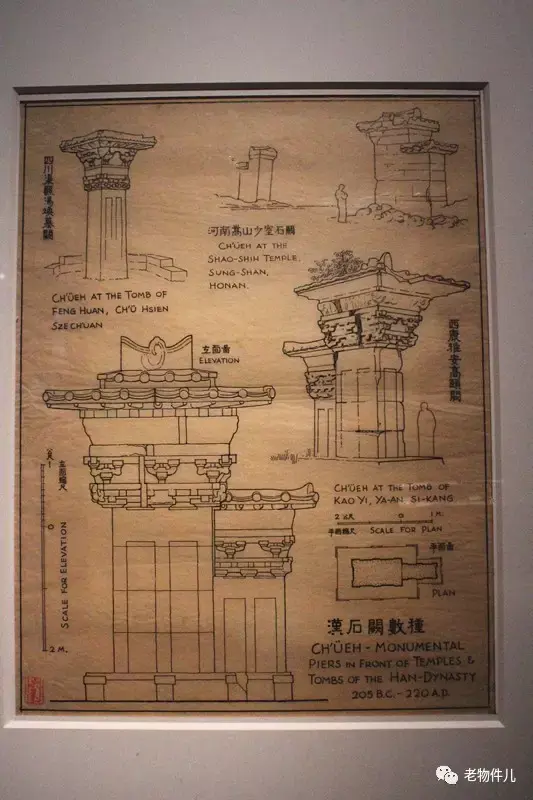 四川渠縣馮煥墓闕
CH'ÜEH AT THE TOMB OF
FENG HUAN, CH'Ü HSIEN
SZECHUAN
河南嵩山少室石闕
CH'ÜEH AT THE
SHAO-SHIH TEMPLE,
SUNG-SHAN,
HONAN.
西康雅安高頤闕
CH'ÜEH AT THE TOMB OF
KAO YI, YA-AN SI-KANG
立面圖
ELEVATION
立面縮尺
SCALE FOR ELEVATION
1
0
2 M.
2 公尺 0 1 M.
平面縮尺 SCALE FOR PLAN
平面圖
PLAN
漢石闕數種
CH'ÜEH - MONUMENTAL
PIERS IN FRONT OF TEMPLES &
TOMBS OF THE HAN-DYNASTY
205 B.C. - 220 A.D.
老物件儿